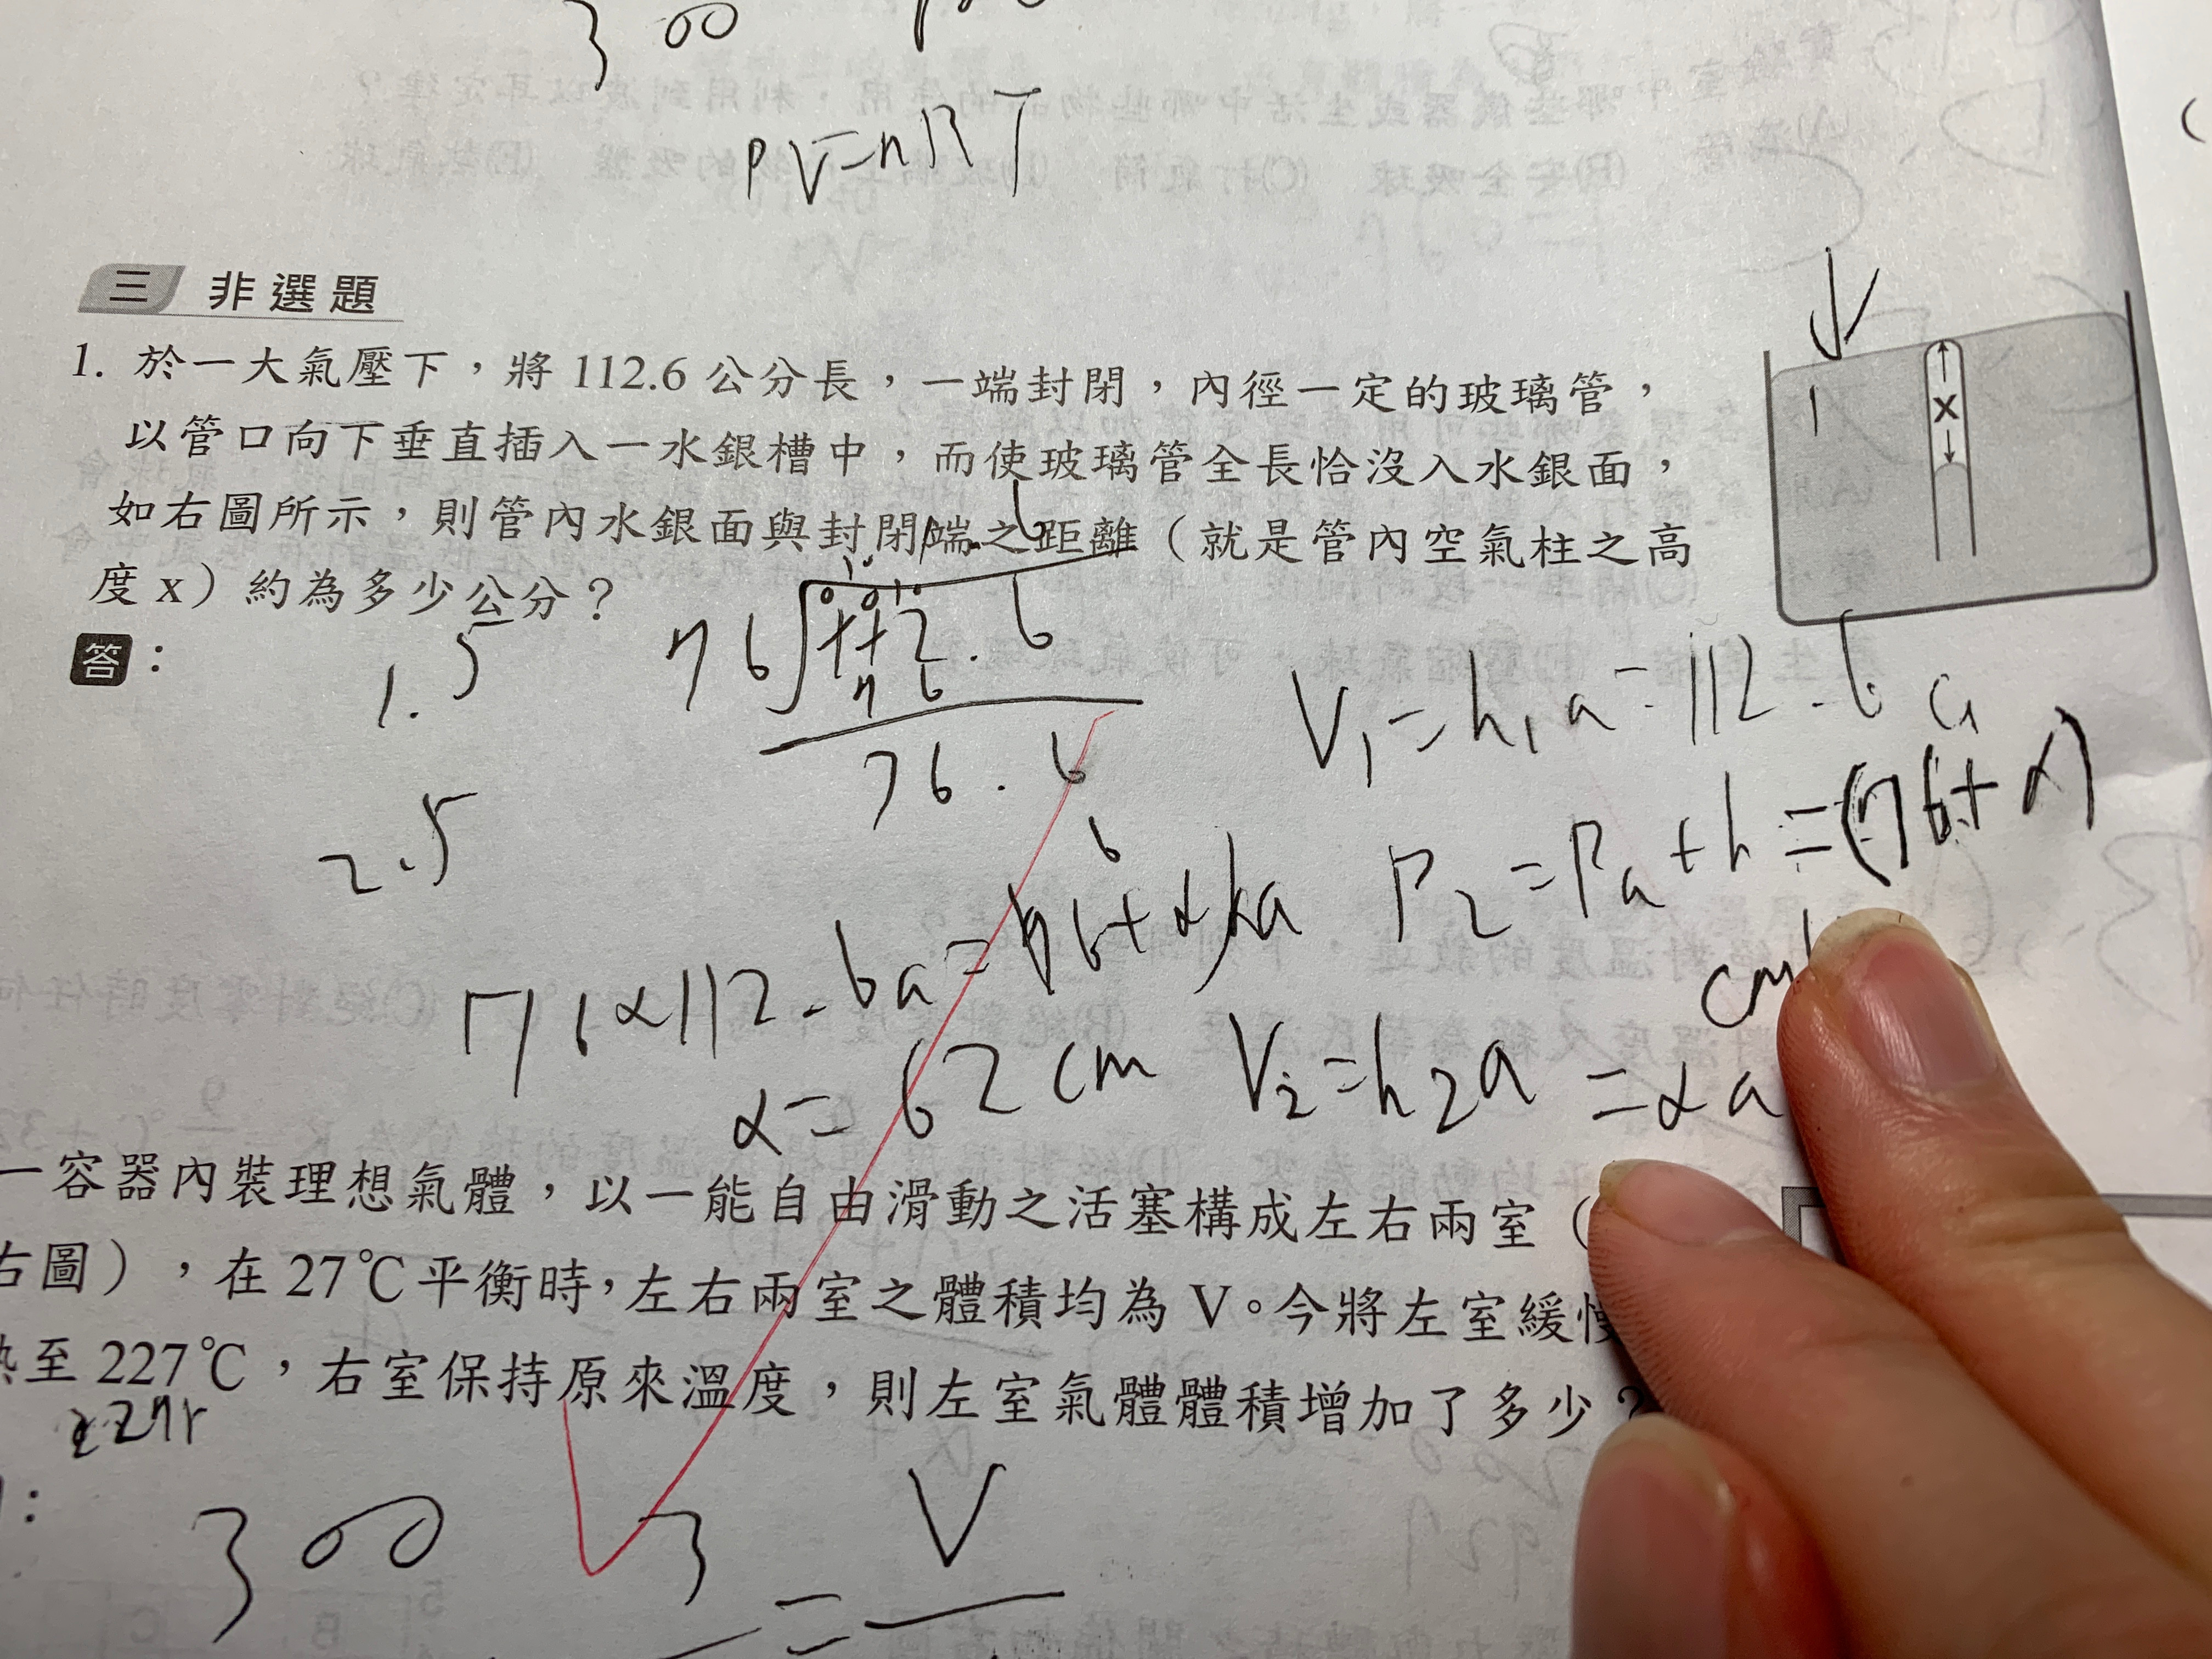 300
PV=nRT
三 非選題
1. 於一大氣壓下，將 112.6 公分長，一端封閉，內徑一定的玻璃管，
以管口向下垂直插入一水銀槽中，而使玻璃管全長恰沒入水銀面，
如右圖所示，則管內水銀面與封閉端之距離（就是管內空氣柱之高
度 x）約為多少公分？
x
答：
1.5
76 112.6
76
36.6
2.5
V1=h1a=112.6a
P2=Pa+h=(76+x)
76x112.6a=(76+x)xa
cm
x=62cm
V2=h2a=xa
一容器內裝理想氣體，以一能自由滑動之活塞構成左右兩室（
右圖），在 27℃平衡時，左右兩室之體積均為 V。今將左室緩慢
熱至 227℃，右室保持原來溫度，則左室氣體體積增加了多少？
：
300
3
=
V